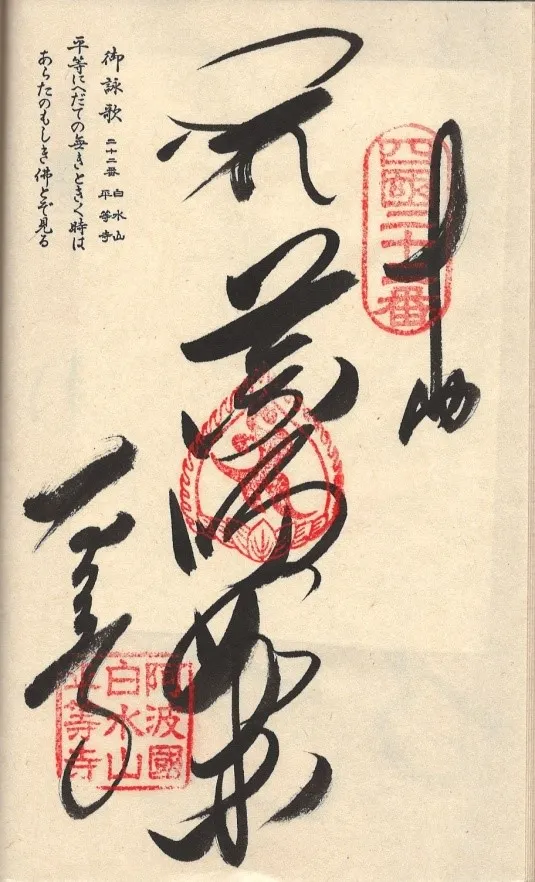 四國二十二番
奉納
薬師如来
平等寺
阿波國
白水山
平等寺
御詠歌 二十二番 白水山 平等寺
平等にへだての無きときく時は
あらたのもしき佛とぞ見る